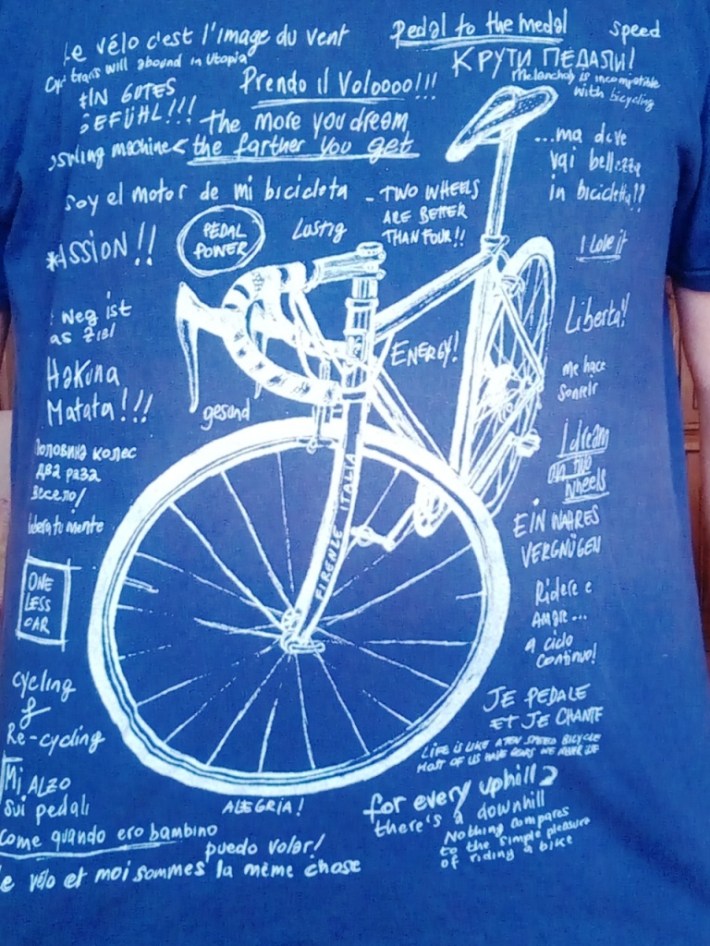 Le vélo c'est l'image du vent
Pedal to the medal
Speed
trans will abound in Utopia
КРУТИ ПЕДАЛИ!
Prendo il Voloooo!!!
Melancholy is incompatible
with bicycling
EIN GUTES
GEFÜHL!!!
The more you dream
the farther you get
machine
...ma dove
vai bellezza
in bicicletta??
Soy el motor de mi bicicleta
- TWO WHEELS
ARE BETTER
THAN FOUR!!
PEDAL
POWER
Lustig
ASSION!!
I Love it
Weg ist
as Ziel
Liberta!
ENERGY!
Hakuna
Matata!!!
me hace
Sonreir
gesund
половина колес
два раза
весело!
I dream
on two
wheels
libera tu mente
EIN WAHRES
VERGNÜGEN
FIRENZE ITALIA
ONE
LESS
CAR
Ridere e
Amare...
a ciclo
Continuo!
Cycling
&
Re-cycling
JE PEDALE
ET JE CHANTE
LIFE IS LIKE A TEN SPEED BICYCLE
MOST OF US HAVE GEARS WE NEVER USE
Mi ALZO
Sui pedali
come quando ero bambino
ALEGRIA!
for every uphill
there's a downhill
puedo volar!
Nothing compares
to the simple pleasure
of riding a bike
e vélo et moi sommes la même chose